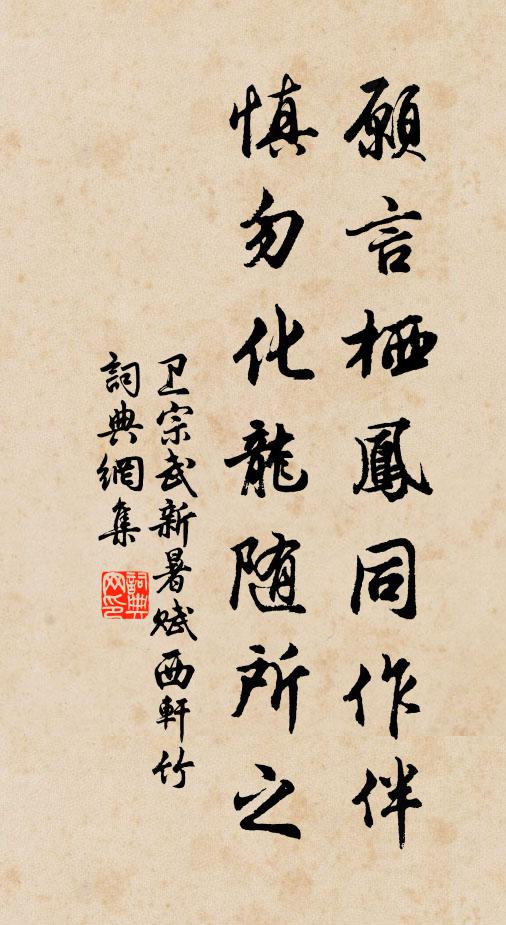 願言栖鳳同作伴
慎勿化龍随所之
卫宗武新暑赋西軒竹
詞典網集
詞典网印